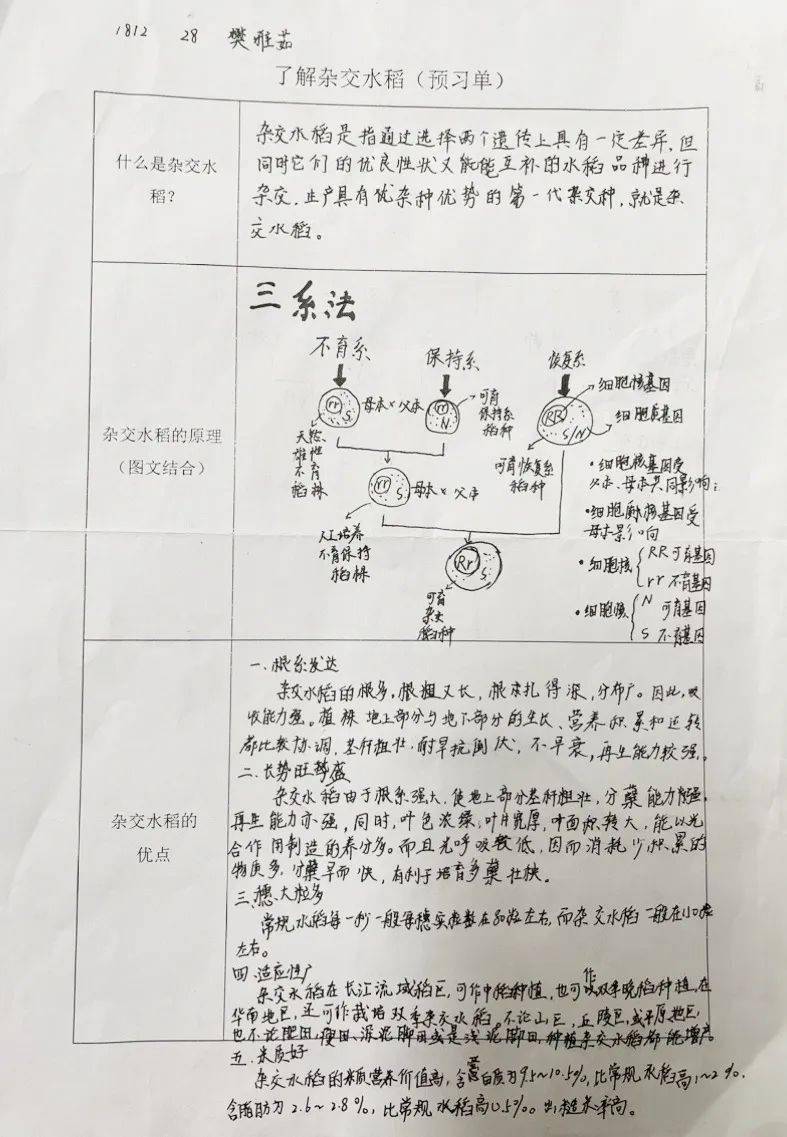 1812 28 樊雅茹
了解杂交水稻（预习单）
什么是杂交水
稻？
杂交水稻是指通过选择两个遗传上具有一定差异，但
同时它们的优良性状又能能互补的水稻品种进行
杂交，生产具有优杂种优势的第一代杂交种，就是杂
交水稻。
杂交水稻的原理
（图文结合）
三系法
不育系 保持系 恢复系
rr S 母本×父本 rr N 可育
保持系
稻种
RR S/N 细胞核基因
细胞质基因
天然
雄性
不育
稻株
可育恢复系
稻种
rr S 母本×父本
人工培养
不育保持
稻株
Rr S
可育
杂交
稻种
·细胞核基因受
父本、母本共同影响；
基因受
母本影响
·细胞核 RR 可育基因
rr 不育基因
N 可育基因
S 不育基因
杂交水稻的
优点
一.根系发达
杂交水稻的根多，根粗又长，根扎得深，分布广。因此，吸
收能力强。植株地上部分与地下部分的生长、营养积累和运转
都比较协调，茎秆粗壮·耐旱抗倒伏，不早衰，再生能力较强。
二.长势旺盛
杂交水稻由于根系强大，使地上部分茎秆粗壮，分蘖能力强，
再生能力亦强，同时，叶色浓绿，叶片宽厚，叶面积较大，能以光
合作用制造的养分多。而且光呼吸较低，因而消耗少积累的
物质多，分蘖早而快，有利于培育多蘖壮秧。
三.穗大粒多
常规水稻每一般每穗实粒数在80粒左右，而杂交水稻一般在
左右。
四.适应性广
杂交水稻在长江流域稻区，可作中稻种植，也可作双季晚稻种植，在
华南地区，还可作栽培双季杂交水稻，不论山区，丘陵区，或平原地区，
也不论肥田，瘦田，深泥脚田或是浅泥脚田，种植杂交水稻都能增产。
五.米质好
杂交水稻的米质营养价值高，含蛋白质为9.5~10.5%，比常规水稻高1~2%.
含脂肪为2.6~2.8%，比常规水稻高0.5%。出糙米率高。